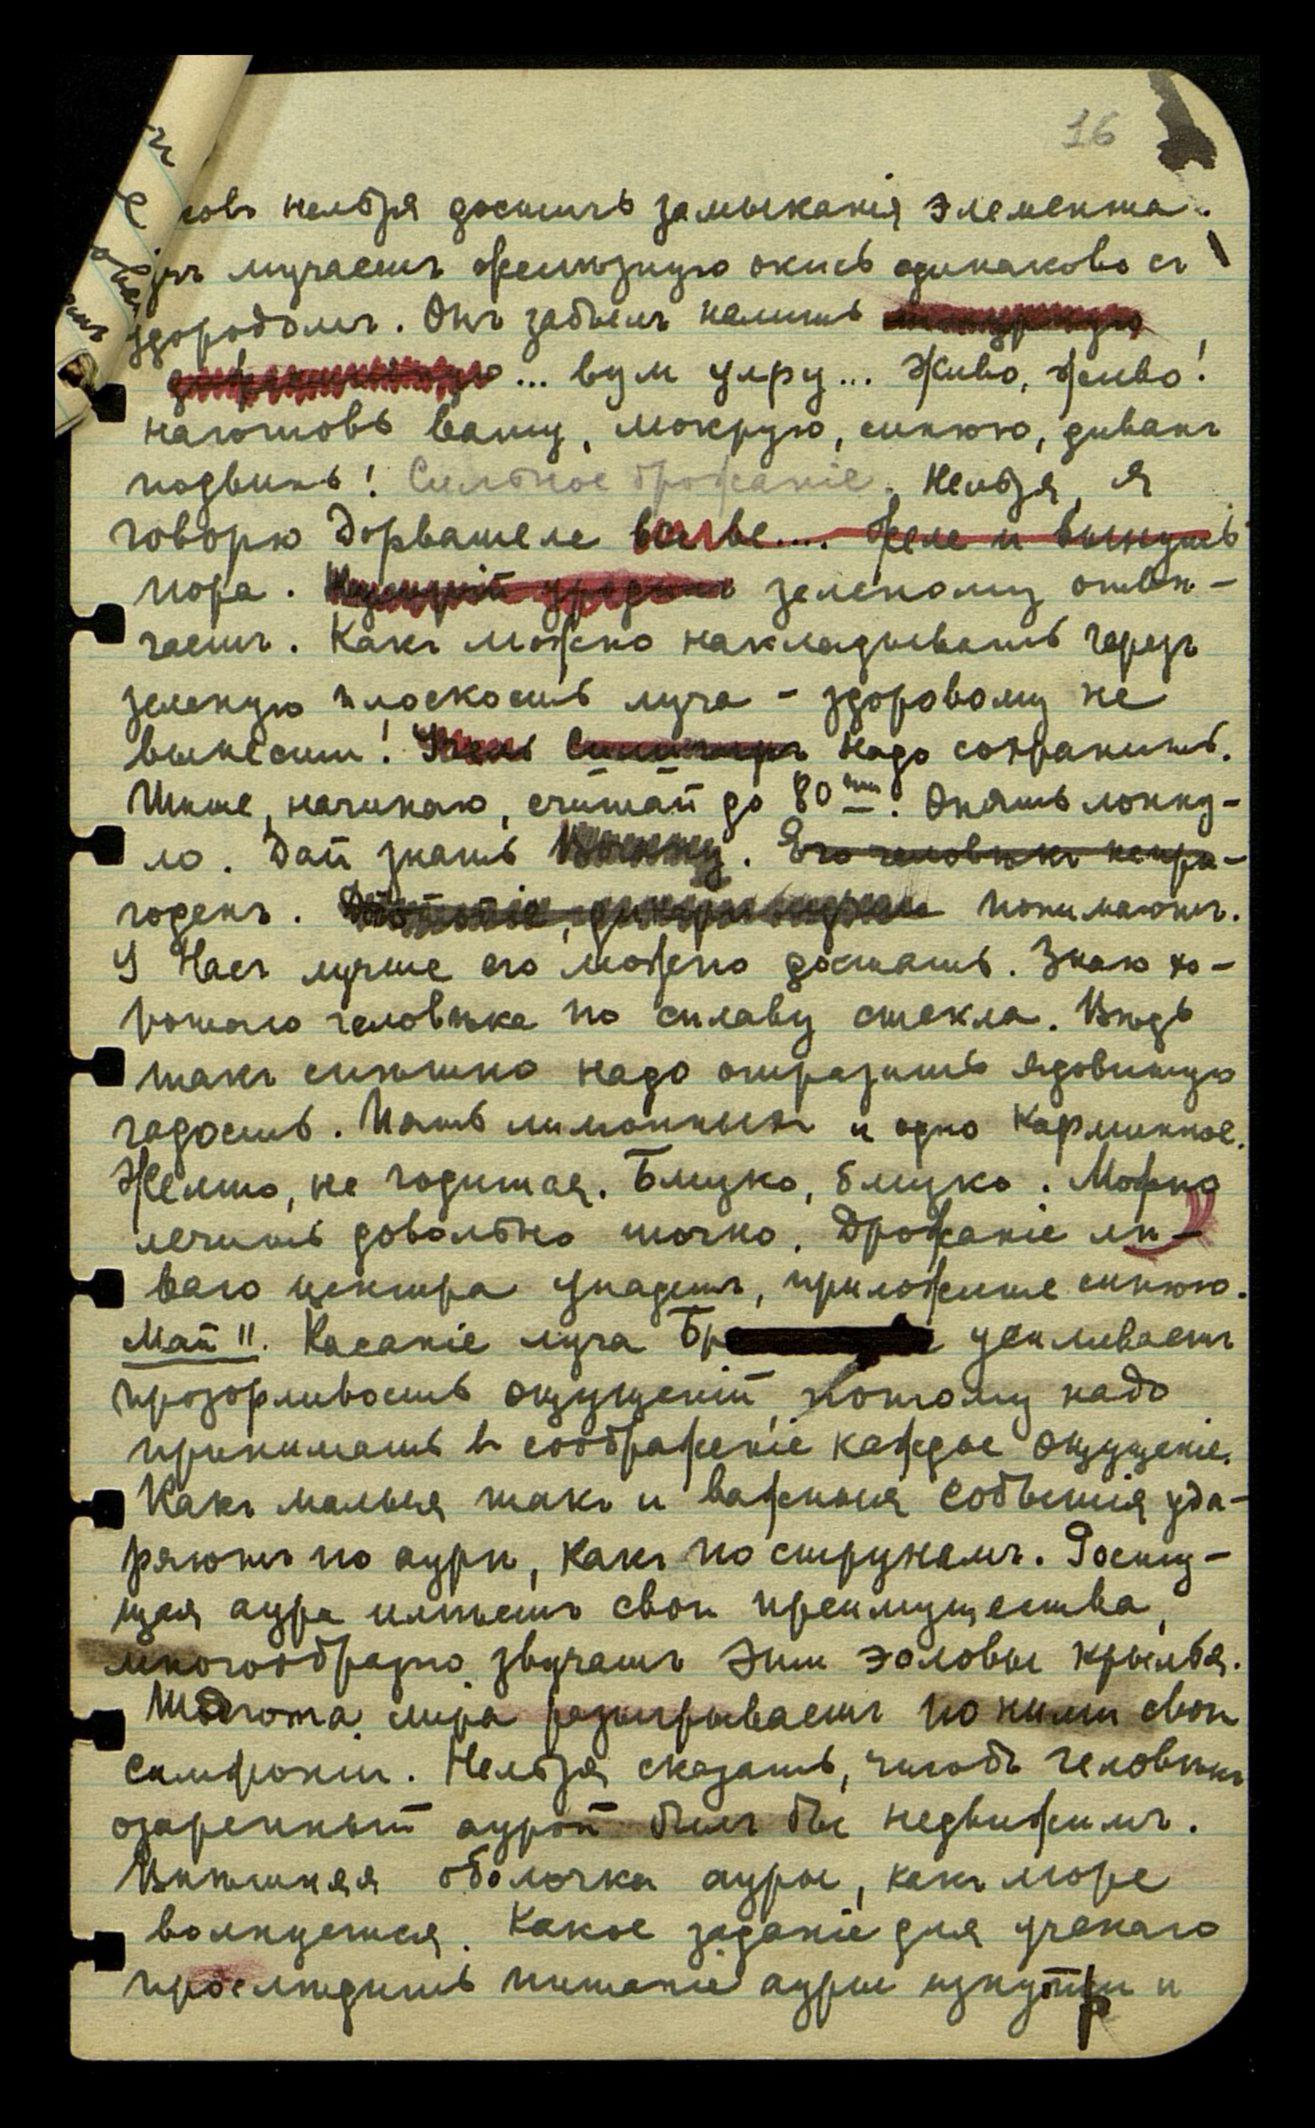 16
нельзя достичь замыканія элемента.
мучаетъ желѣзную окись одинаково съ
Онъ забылъ налить
... вум улру... Живо, живо!
наготовь вату, мокрую, синюю, диванъ
подвинь! Сильное дрожаніе. Нельзя, я
говорю Дорвашеле .... Желе и вынуть
пора. зеленому отвѣ-
чаетъ. Какъ можно накладывать черезъ
зеленую плоскость луча – здоровому не
вынести! надо сохранить.
Тише, начинаю, считай до 80ти. Опять лопну-
ло. Дай знать . Его человѣкъ непри-
годенъ. понимаютъ.
У Насъ лучше его можно достать. Знаю хо-
рошаго человѣка по сплаву стекла. Вѣдь
такъ спѣшно надо отразить ядовитую
гадость. Пять лимонныхъ и одно карминное.
Желто, не годится. Близко, близко. Можно
лечить довольно точно. Дрожаніе лѣ-
ваго центра упадетъ, приложите синюю.
Май 11. Касаніе луча Бр усиливаетъ
прозорливость ощущеній, потому надо
принимать въ соображеніе каждое ощущеніе.
Какъ малыя такъ и важныя событія уда-
ряютъ по аурѣ, какъ по струнамъ. Расту-
щая аура имѣетъ свои преимущества,
многообразно звучатъ эти эоловы крылья.
Тягота міра разыгрываетъ по ними свои
симфоніи. Нельзя сказать, чтобъ человѣкъ
озаренный аурой былъ бы недвижимъ.
Внѣшняя оболочка ауры, какъ море
волнуется. Какое заданіе для ученаго
прослѣдить питаніе ауры изнутри и